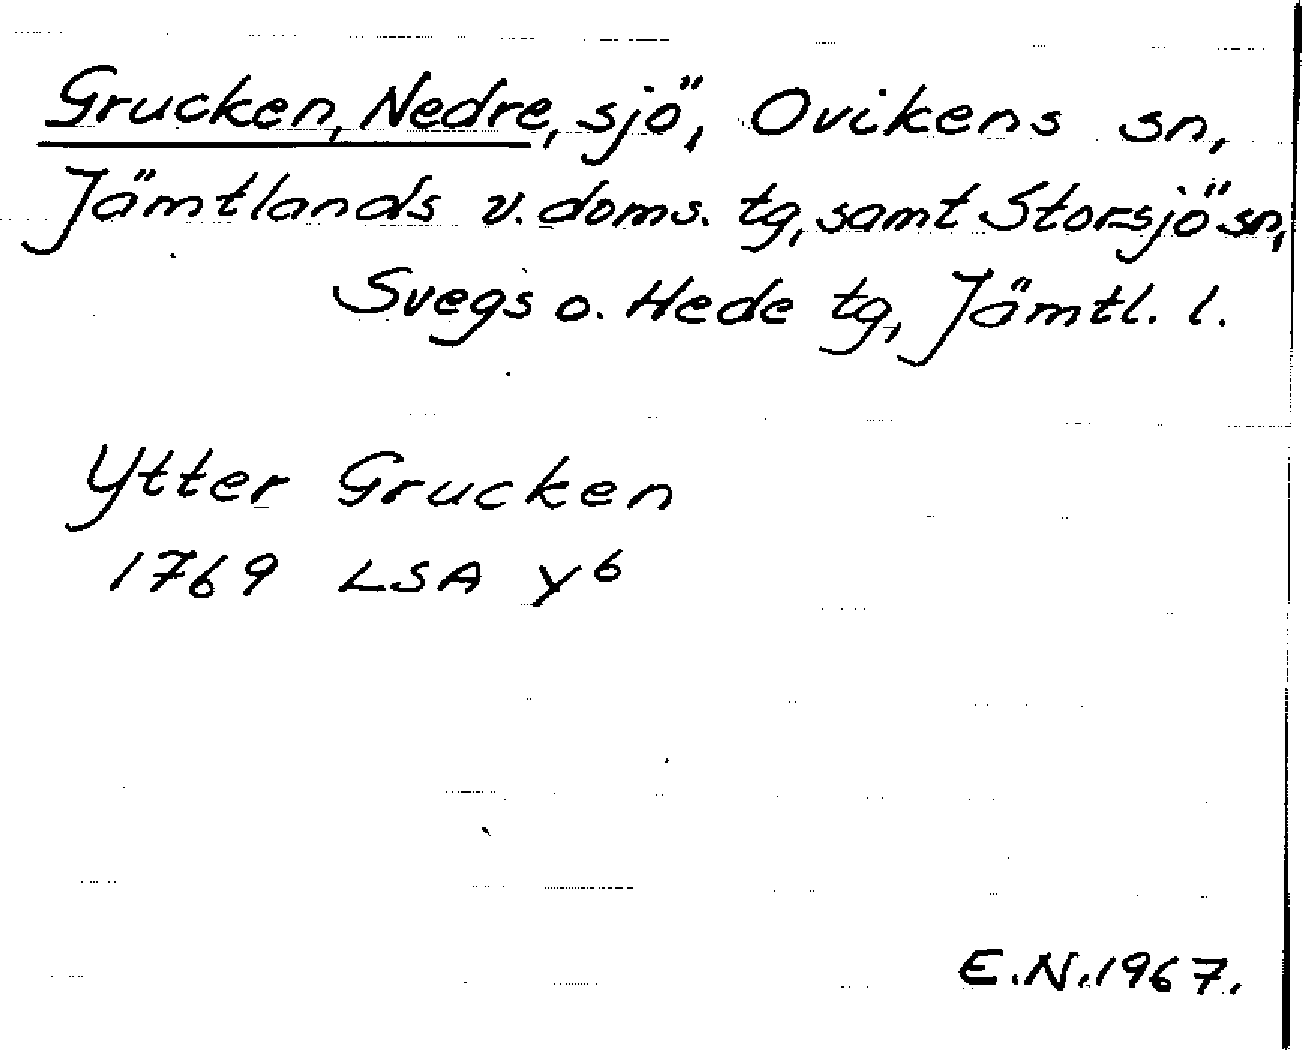 Grucken, Nedre, sjö, Ovikens sn,
Jämtlands v. doms. tg, samt Storsjö sn,
Svegs o. Hede tg, Jämtl. l.
Ytter Grucken
1769 LSA Y6
E.N. 1967.